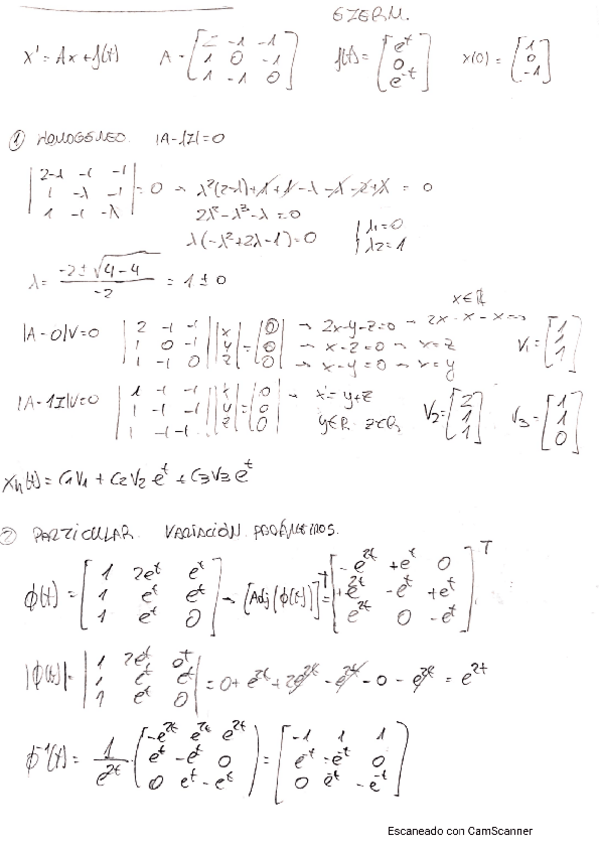 EZERM.
x' = Ax + f(t)   A = [2 -1 -1; 1 0 -1; 1 -1 0]   f(t) = [e^t; 0; e^-t]   x(0) = [1; 0; -1]
① HOMOGÉNEO. |A-λI|=0
|2-λ -1 -1; 1 -λ -1; 1 -1 -λ| = 0 → λ²(2-λ)+1+1-λ-λ-2+λ = 0
2λ²-λ³-λ=0
λ(-λ²+2λ-1)=0   | λ1=0
λ2=1
λ = (-2±√(4-4))/(-2) = 1±0
x∈ℝ
|A-0|V=0   |2 -1 -1; 1 0 -1; 1 -1 0| |x; y; z| = |0; 0; 0| → 2x-y-z=0 → 2x-x-x
→ x-z=0 → x=z
→ x-y=0 → x=y   V1 = [1; 1; 1]
|A-1I|V=0   |1 -1 -1; 1 -1 -1; 1 -1 -1| |x; y; z| = |0; 0; 0| → x=y+z
y∈ℝ z∈ℝ   V2 = [2; 1; 1]   V3 = [1; 1; 0]
Xh(t) = C1V1 + C2V2 e^t + C3V3 e^t
② PARTICULAR. VARIACIÓN PARÁMETROS.
ϕ(t) = [1 2e^t e^t; 1 e^t e^t; 1 e^t 0] → [Adj(ϕ(t))]^T = [-e^2t +e^t 0; +e^2t -e^t +e^t; e^2t 0 -e^t]^T
|ϕ(t)| = |1 2e^t e^t; 1 e^t e^t; 1 e^t 0| = 0 + e^2t + 2e^2t - e^2t - 0 - e^2t = e^2t
ϕ^-1(t) = 1/e^2t (-e^2t e^2t e^2t; e^t -e^t 0; 0 e^t -e^t) = [-1 1 1; e^-t -e^-t 0; 0 e^-t -e^-t]
Escaneado con CamScanner